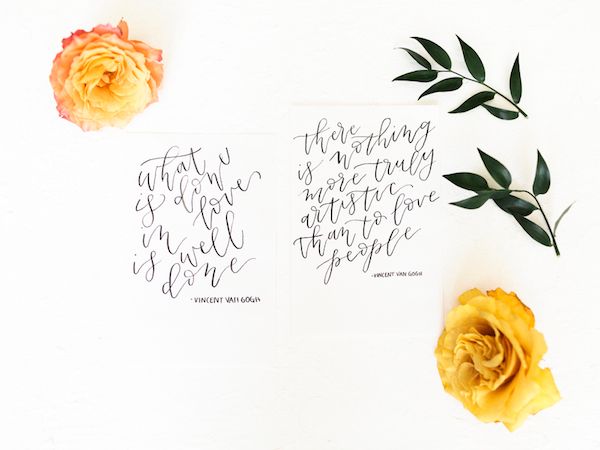 what
is done
love
in
is well
done
- VINCENT VAN GOGH
there
is nothing
more truly
artistic
than to love
people
- VINCENT VAN GOGH